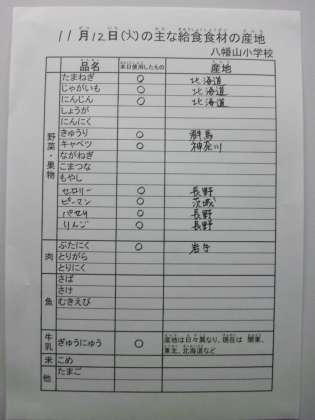 11月12日(火)の主な給食食材の産地
八幡山小学校
品名 本日使用したもの 産地
野菜・果物
たまねぎ ○ 北海道
じゃがいも ○ 北海道
にんじん ○ 北海道
しょうが
にんにく
きゅうり ○ 群馬
キャベツ ○ 神奈川
ながねぎ
こまつな
もやし
セロリー ○ 長野
ピーマン ○ 茨城
パセリ ○ 長野
りんご ○ 長野
肉
ぶたにく ○ 岩手
とりがら
とりにく
魚
さば
さけ
むきえび
牛乳 ぎゅうにゅう ○ 産地は日々異なり、現在は 関東、
東北、北海道など
米 こめ
他 たまご